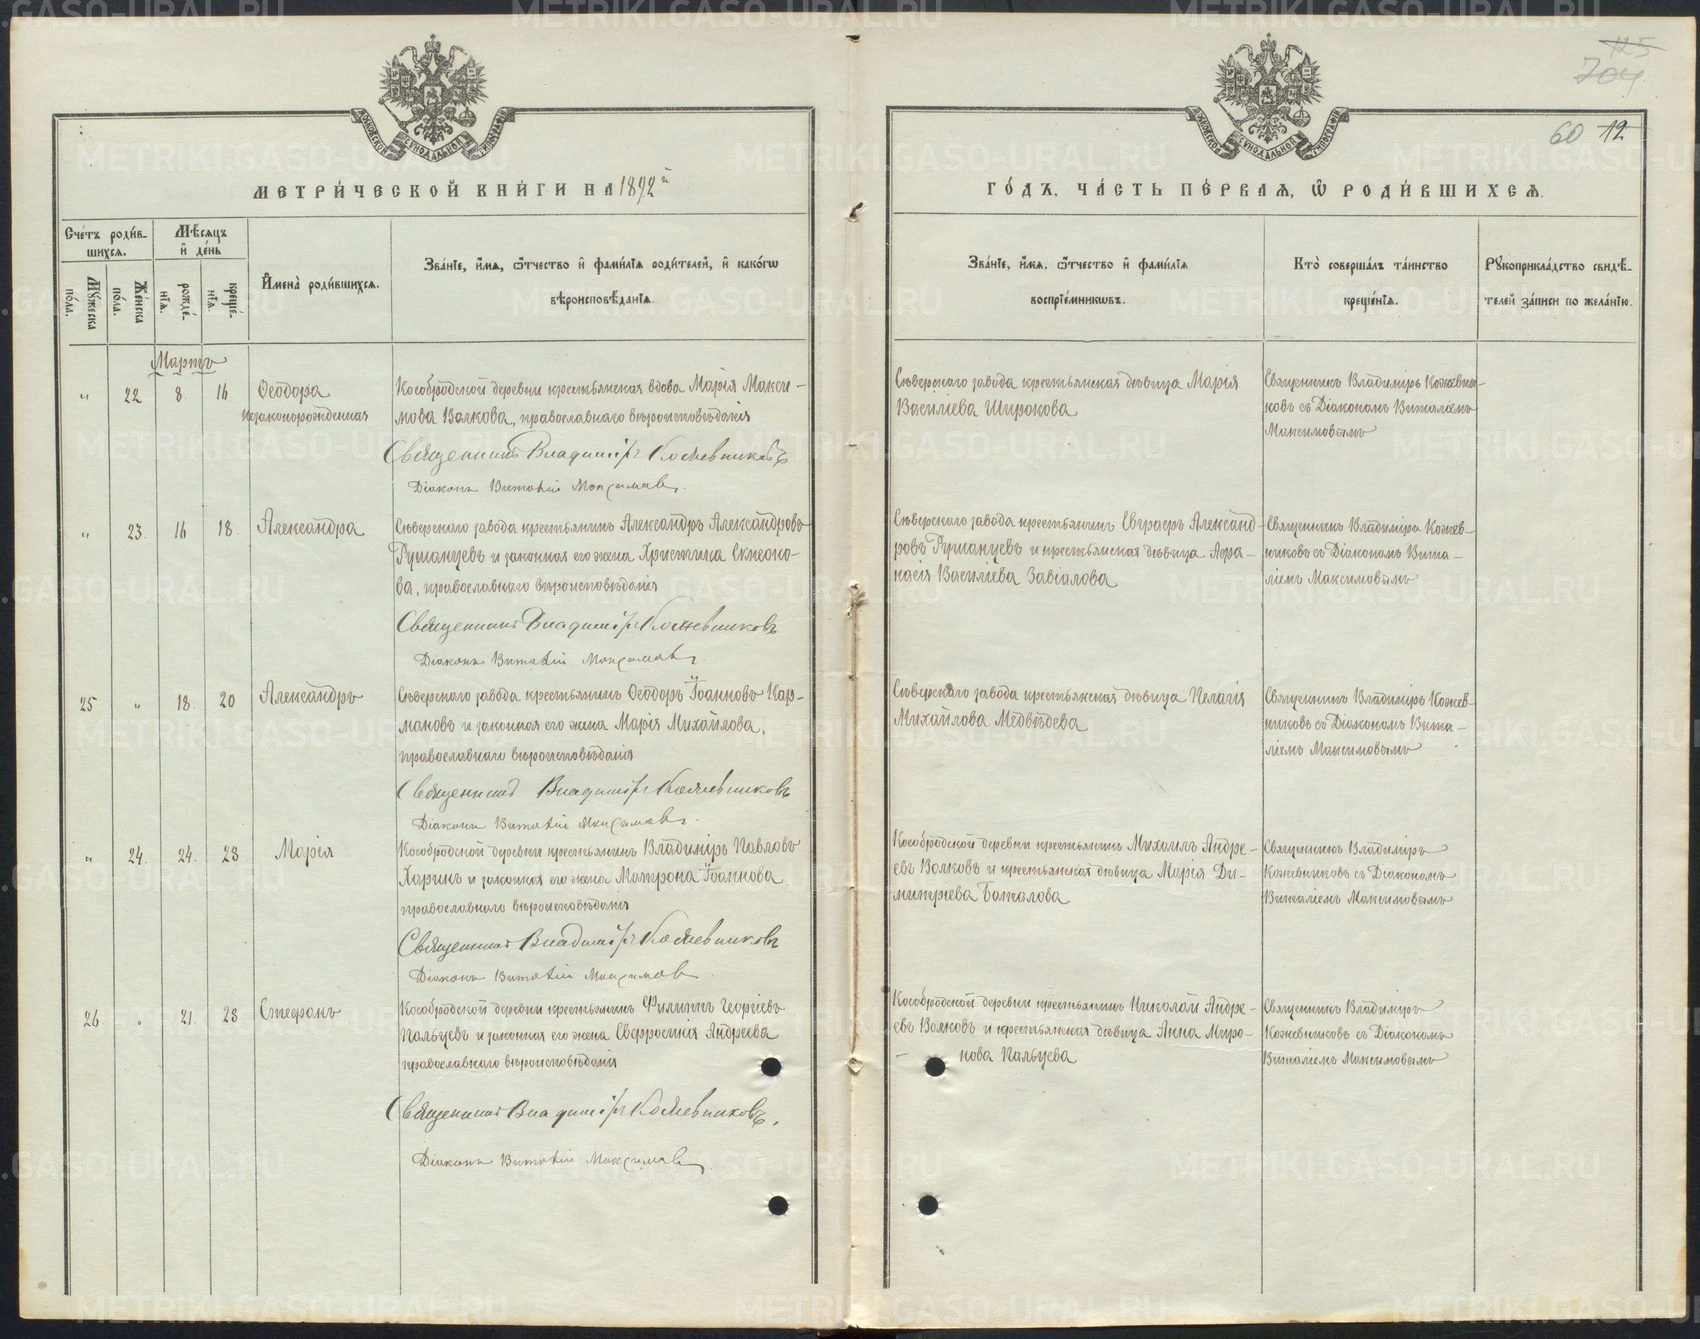 125
704
60 12
МЕТРИ́ЧЕСКОЙ КНИ́ГИ НА 1892й
ГО́ДЪ, ЧА́СТЬ ПЕ́РВАЯ, Ѽ РОДИ́ВШИХСЯ.
Сче́тъ роди́в-
шихся.
Мѣ́сяцъ
и҆ де́нь
Мꙋ́жеска
по́ла.
Же́нска
по́ла.
рожде́-
нїѧ.
креще́-
нїѧ.
И҆мена̀ роди́вшихся.
Зва́нїе, и҆́мя, ѻ҆́тчество и҆ фами́лїя роди́телей, и҆ како́гѡ
вѣроисповѣ́данїя.
Зва́нїе, и҆́мя, ѻ҆́тчество и҆ фами́лїя
воспрїе́мникѡвъ.
Кто̀ соверша́лъ та́инство
креще́нїя.
Рꙋкоприкла́дство свидѣ́-
телей за́писи по жела́нїю.
Мартъ
" 22 8. 16
Ѳеодора
незаконорожденная
Кособродской деревни крестьянская вдова Марія Макси-
мова Волкова, православнаго вѣроисповѣданія
Священникъ Владиміръ Кожевниковъ
Діаконъ Виталій Максимовъ.
Сѣверскаго завода крестьянская дѣвица Марія
Василіева Широкова
Священникъ Владиміръ Кожевни-
ковъ съ Діакономъ Виталіемъ
Максимовымъ
" 23. 16 18.
Александра
Сѣверскаго завода крестьянинъ Александръ Александровъ
Румянцевъ и законная его жена Христина Симеоно-
ва, православнаго вѣроисповѣданія
Священникъ Владиміръ Кожевниковъ
Діаконъ Виталій Максимовъ.
Сѣверскаго завода крестьянинъ Евграфъ Александ-
ровъ Румянцевъ и крестьянская дѣвица Афа-
насія Василіева Завіалова
Священникъ Владиміръ Кожев-
никовъ съ Діакономъ Вита-
ліемъ Максимовымъ
25 " 18. 20
Александръ
Сѣверскаго завода крестьянинъ Ѳеодоръ Іоанновъ Кар-
маковъ и законная его жена Марія Михайлова,
православнаго вѣроисповѣданія
Священникъ Владиміръ Кожевниковъ
Діаконъ Виталій Максимовъ.
Сѣверскаго завода крестьянская дѣвица Пелагія
Михайлова Медвѣдева
Священникъ Владиміръ Кожев-
никовъ съ Діакономъ Вита-
ліемъ Максимовымъ
" 24. 24. 28
Марія
Кособродской деревни крестьянинъ Владиміръ Павловъ
Харинъ и законная его жена Матрона Іоаннова
православнаго вѣроисповѣданія
Священникъ Владиміръ Кожевниковъ
Діаконъ Виталій Максимовъ
Кособродской деревни крестьянинъ Михаилъ Андре-
евъ Волковъ и крестьянская дѣвица Марія Ди-
митріева Бажалова
Священникъ Владиміръ
Кожевниковъ съ Діакономъ
Виталіемъ Максимовымъ
26 " 21. 28
Стефанъ
Кособродской деревни крестьянинъ Филиппъ Георгіевъ
Пальцевъ и законная его жена Евфросинія Андреева
православнаго вѣроисповѣданія
Священникъ Владиміръ Кожевниковъ.
Діаконъ Виталій Максимовъ
Кособродской деревни крестьянинъ Николай Андре-
евъ Волковъ и крестьянская дѣвица Анна Миро-
нова Пальцева
Священникъ Владиміръ
Кожевниковъ съ Діакономъ
Виталіемъ Максимовымъ
METRIKI.GASO-URAL.RU